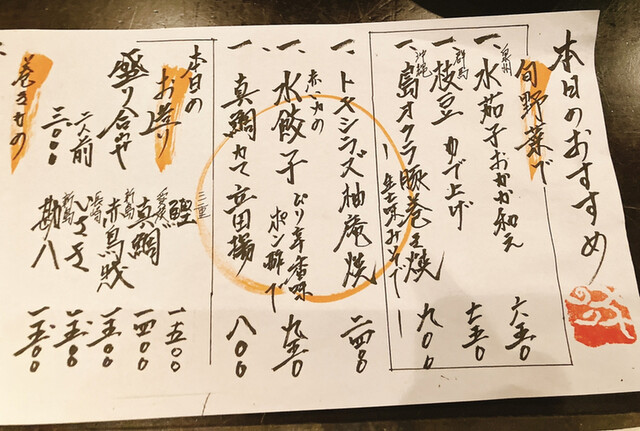 本日のおすすめ
旬野菜で
一、泉州 水茄子おかか和え 六五〇
一、群馬 枝豆 ゆで上げ 七五〇
一、沖縄 島オクラ豚巻き焼 九〇〇
一、トキシラズ柚庵焼 二四〇〇
一、水餃子 ぴり辛香味ポン酢で 九五〇
一、真鯛カマ立田揚 八〇〇
本日の
お造り
盛り合わせ
二人前
三、〇〇〇
三重 鰹 一五〇〇
愛媛 真鯛 一四〇〇
赤烏賊 一五〇〇
長島 いさき 一五〇〇
勘八 一五〇〇
巻きもの